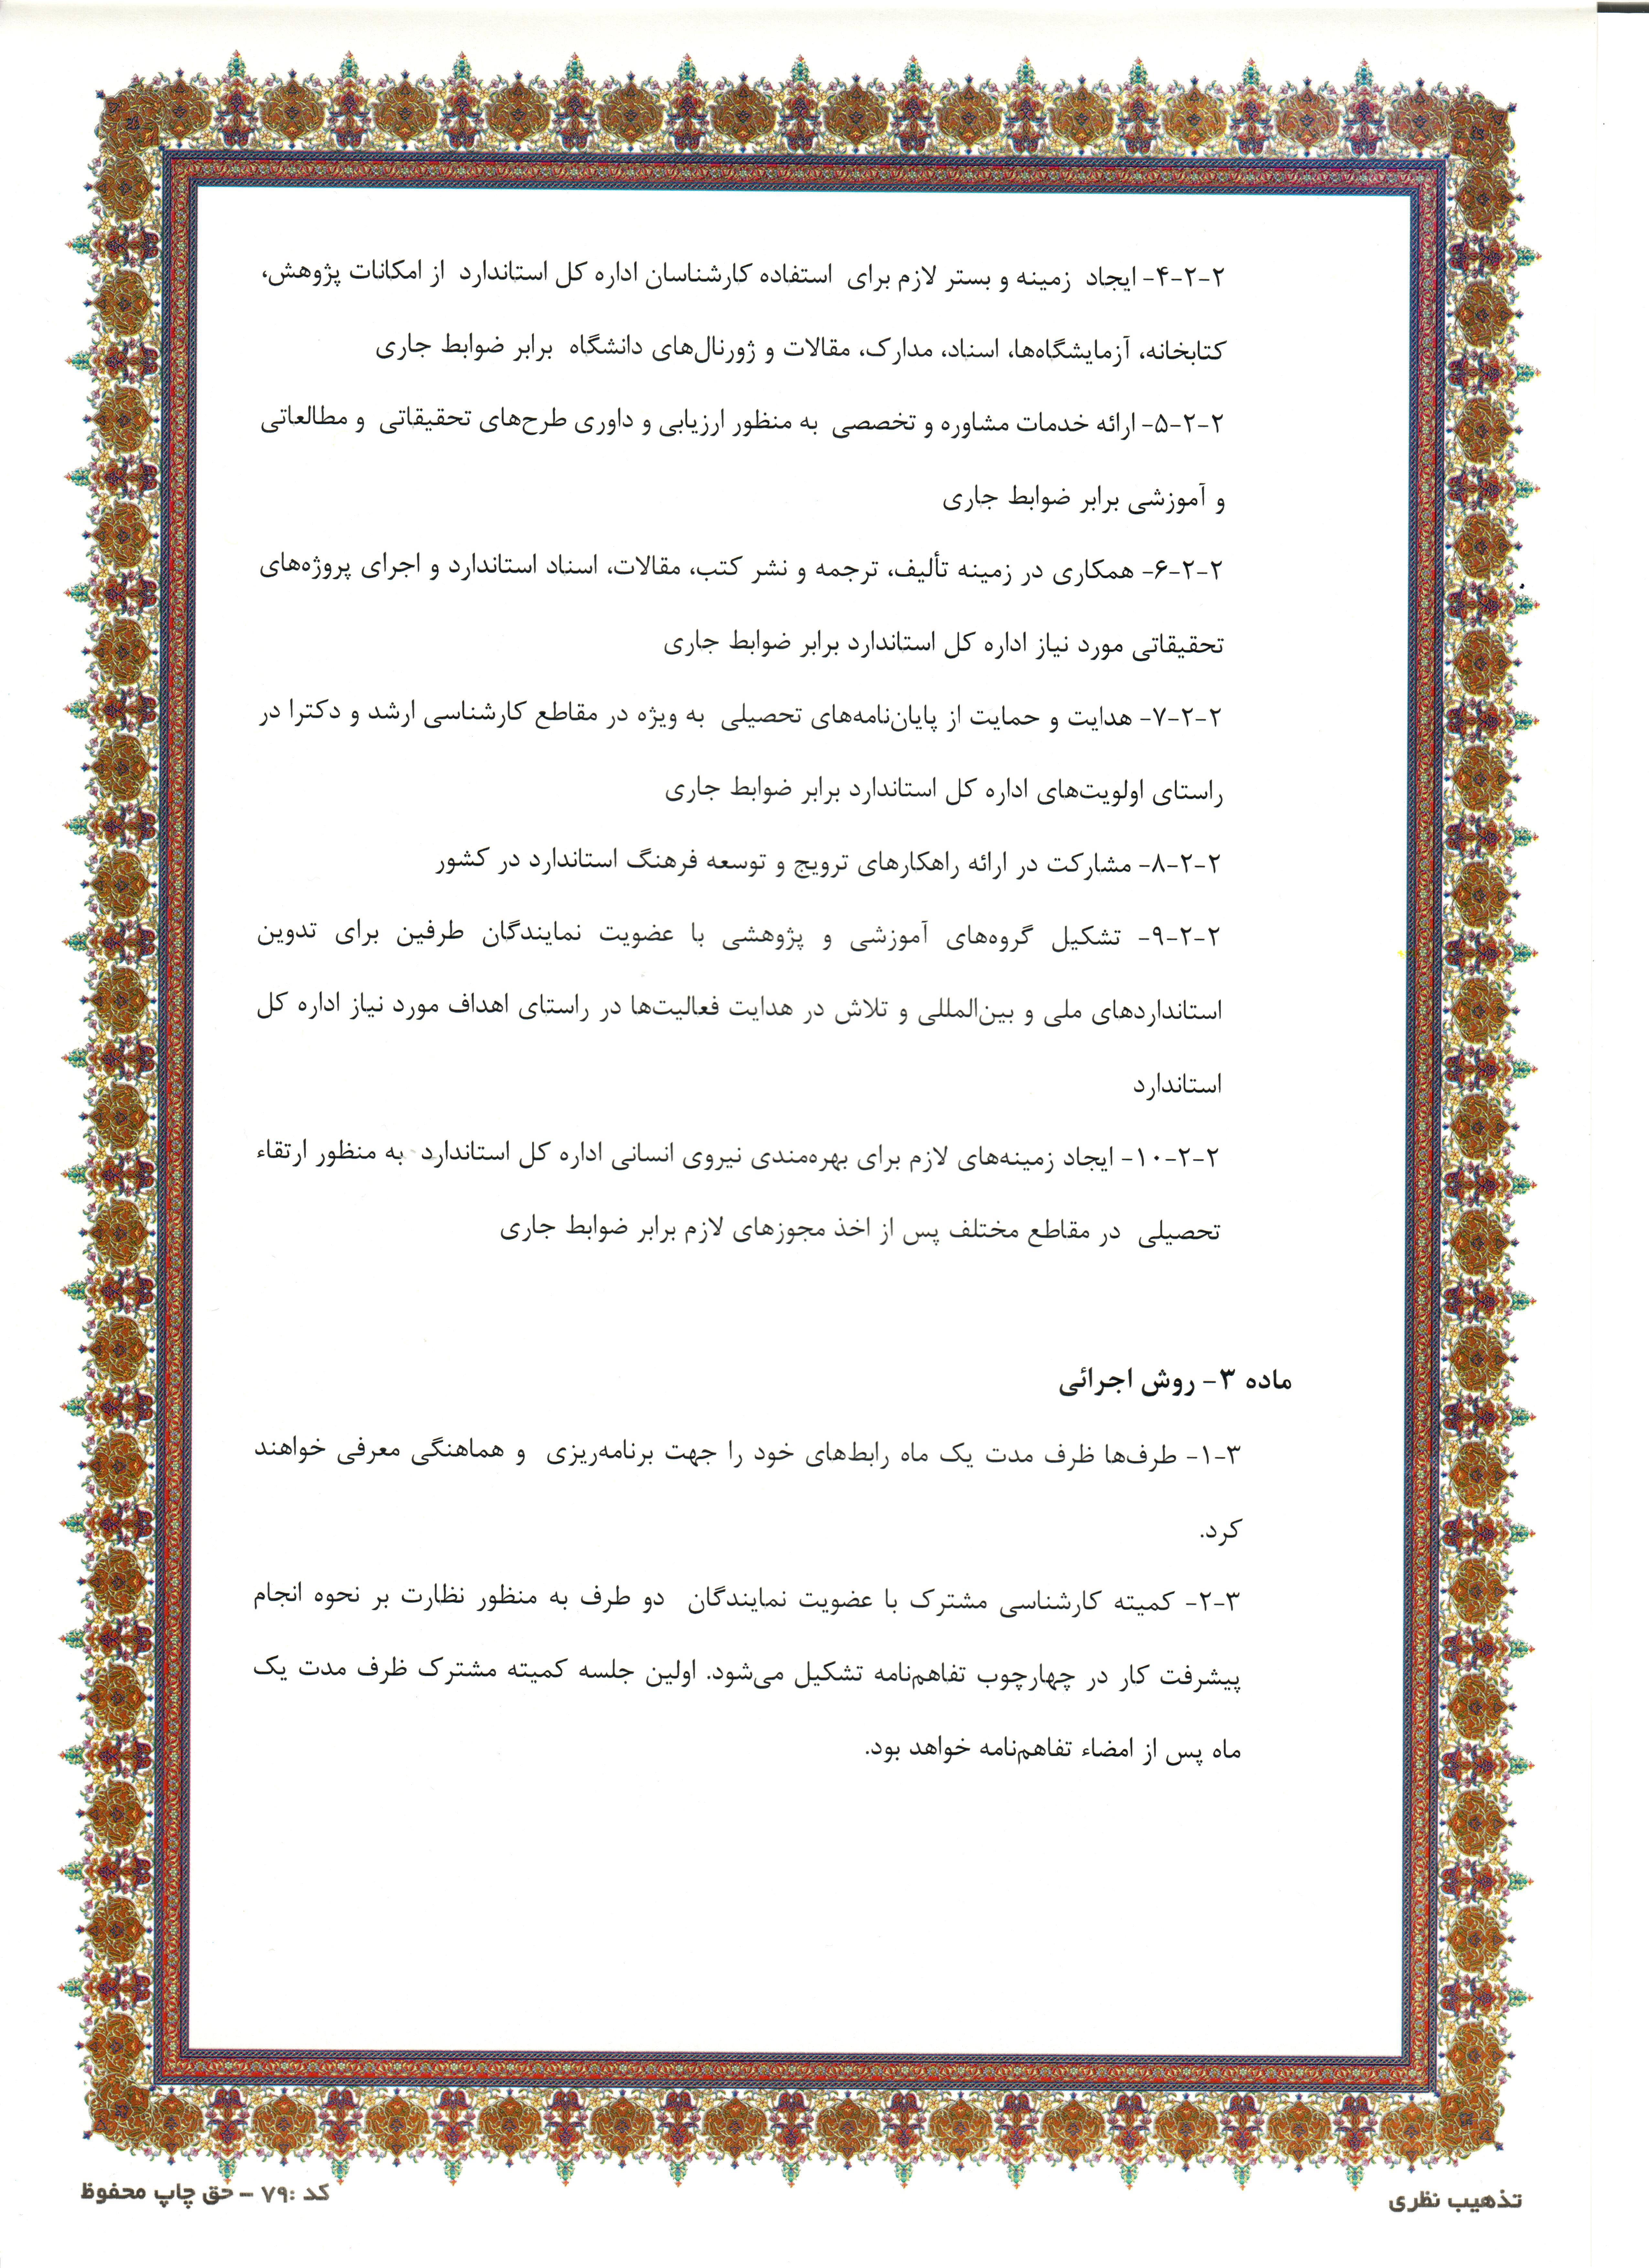 ۲-۲-۴- ایجاد زمینه و بستر لازم برای استفاده کارشناسان اداره کل استاندارد از امکانات پژوهش،
کتابخانه، آزمایشگاه‌ها، اسناد، مدارک، مقالات و ژورنال‌های دانشگاه برابر ضوابط جاری
۲-۲-۵- ارائه خدمات مشاوره و تخصصی به منظور ارزیابی و داوری طرح‌های تحقیقاتی و مطالعاتی
و آموزشی برابر ضوابط جاری
۲-۲-۶- همکاری در زمینه تألیف، ترجمه و نشر کتب، مقالات، اسناد استاندارد و اجرای پروژه‌های
تحقیقاتی مورد نیاز اداره کل استاندارد برابر ضوابط جاری
۲-۲-۷- هدایت و حمایت از پایان‌نامه‌های تحصیلی به ویژه در مقاطع کارشناسی ارشد و دکترا در
راستای اولویت‌های اداره کل استاندارد برابر ضوابط جاری
۲-۲-۸- مشارکت در ارائه راهکارهای ترویج و توسعه فرهنگ استاندارد در کشور
۲-۲-۹- تشکیل گروه‌های آموزشی و پژوهشی با عضویت نمایندگان طرفین برای تدوین
استانداردهای ملی و بین‌المللی و تلاش در هدایت فعالیت‌ها در راستای اهداف مورد نیاز اداره کل
استاندارد
۲-۲-۱۰- ایجاد زمینه‌های لازم برای بهره‌مندی نیروی انسانی اداره کل استاندارد به منظور ارتقاء
تحصیلی در مقاطع مختلف پس از اخذ مجوزهای لازم برابر ضوابط جاری
ماده ۳- روش اجرائی
۳-۱- طرف‌ها ظرف مدت یک ماه رابط‌های خود را جهت برنامه‌ریزی و هماهنگی معرفی خواهند
کرد.
۳-۲- کمیته کارشناسی مشترک با عضویت نمایندگان دو طرف به منظور نظارت بر نحوه انجام
پیشرفت کار در چهارچوب تفاهم‌نامه تشکیل می‌شود. اولین جلسه کمیته مشترک ظرف مدت یک
ماه پس از امضاء تفاهم‌نامه خواهد بود.
تذهیب نظری
کد :۷۹ - حق چاپ محفوظ